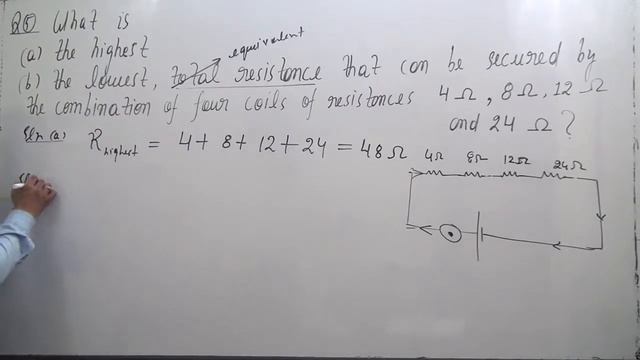 Q5 What is
(a) the highest
equivalent
(b) the lowest, total resistance that can be secured by
the combination of four coils of resistances 4Ω, 8Ω, 12Ω
and 24Ω?
Soln (a) R highest = 4 + 8 + 12 + 24 = 48Ω
4Ω 8Ω 12Ω 24Ω